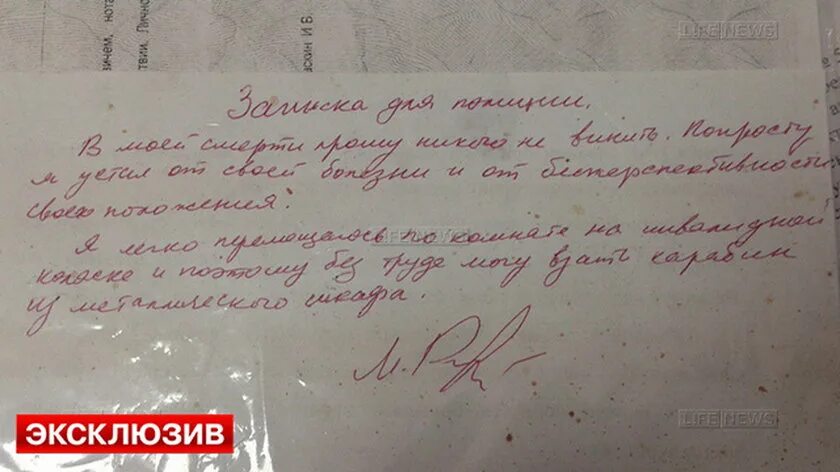 LIFE NEWS
Записка для полиции.
В моей смерти прошу никого не винить. Попросту
я устал от своей болезни и от бесперспективности
своего положения.
LIFE NEWS
Я легко перемещаюсь по комнате на инвалидной
коляске и поэтому без труда могу взять карабин
из металлического шкафа.
М.
LIFE NEWS
ЭКСКЛЮЗИВ